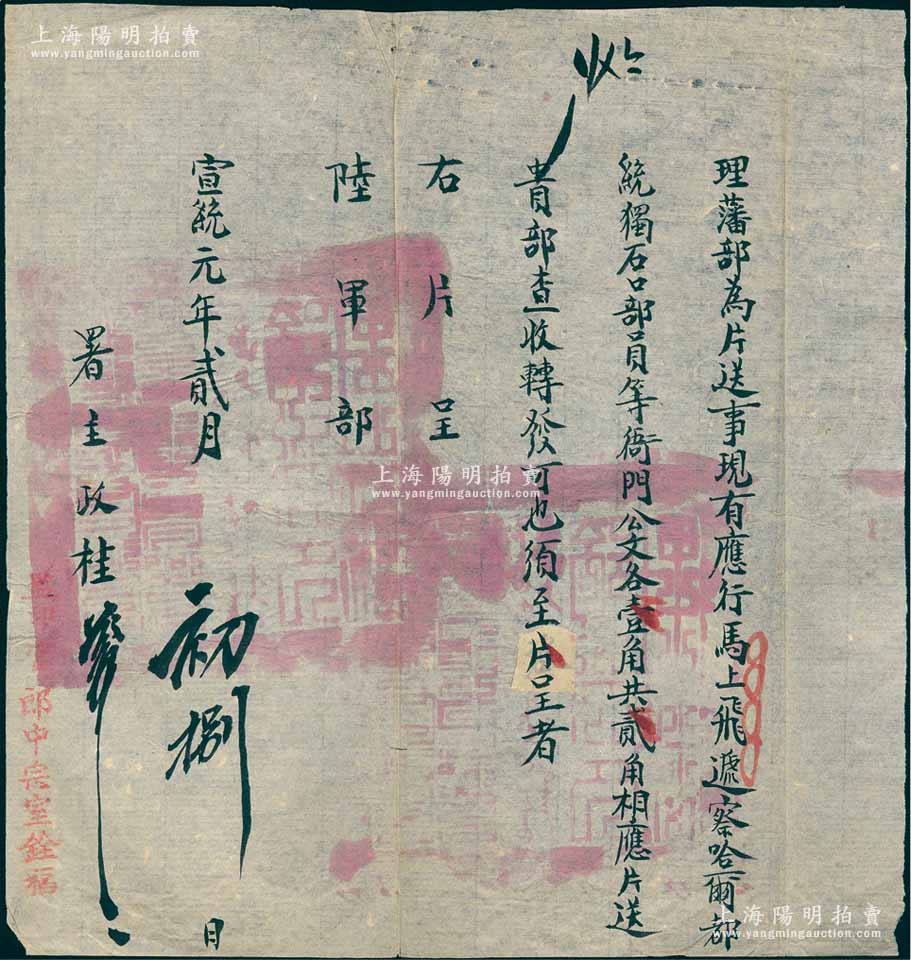 理藩部為片送事現有應行馬上飛遞察哈爾都
統獨石口部員等衙門公文各壹角共貳角相應片送
貴部查收轉發可也須至片呈者
右片呈
陸軍部
宣統元年貳月初捌日
署主政桂
郎中宗室銓福
上海陽明拍賣
www.yangmingauction.com
上海陽明拍賣
www.yangmingauction.com
上海陽明拍賣
www.yangmingauction.com